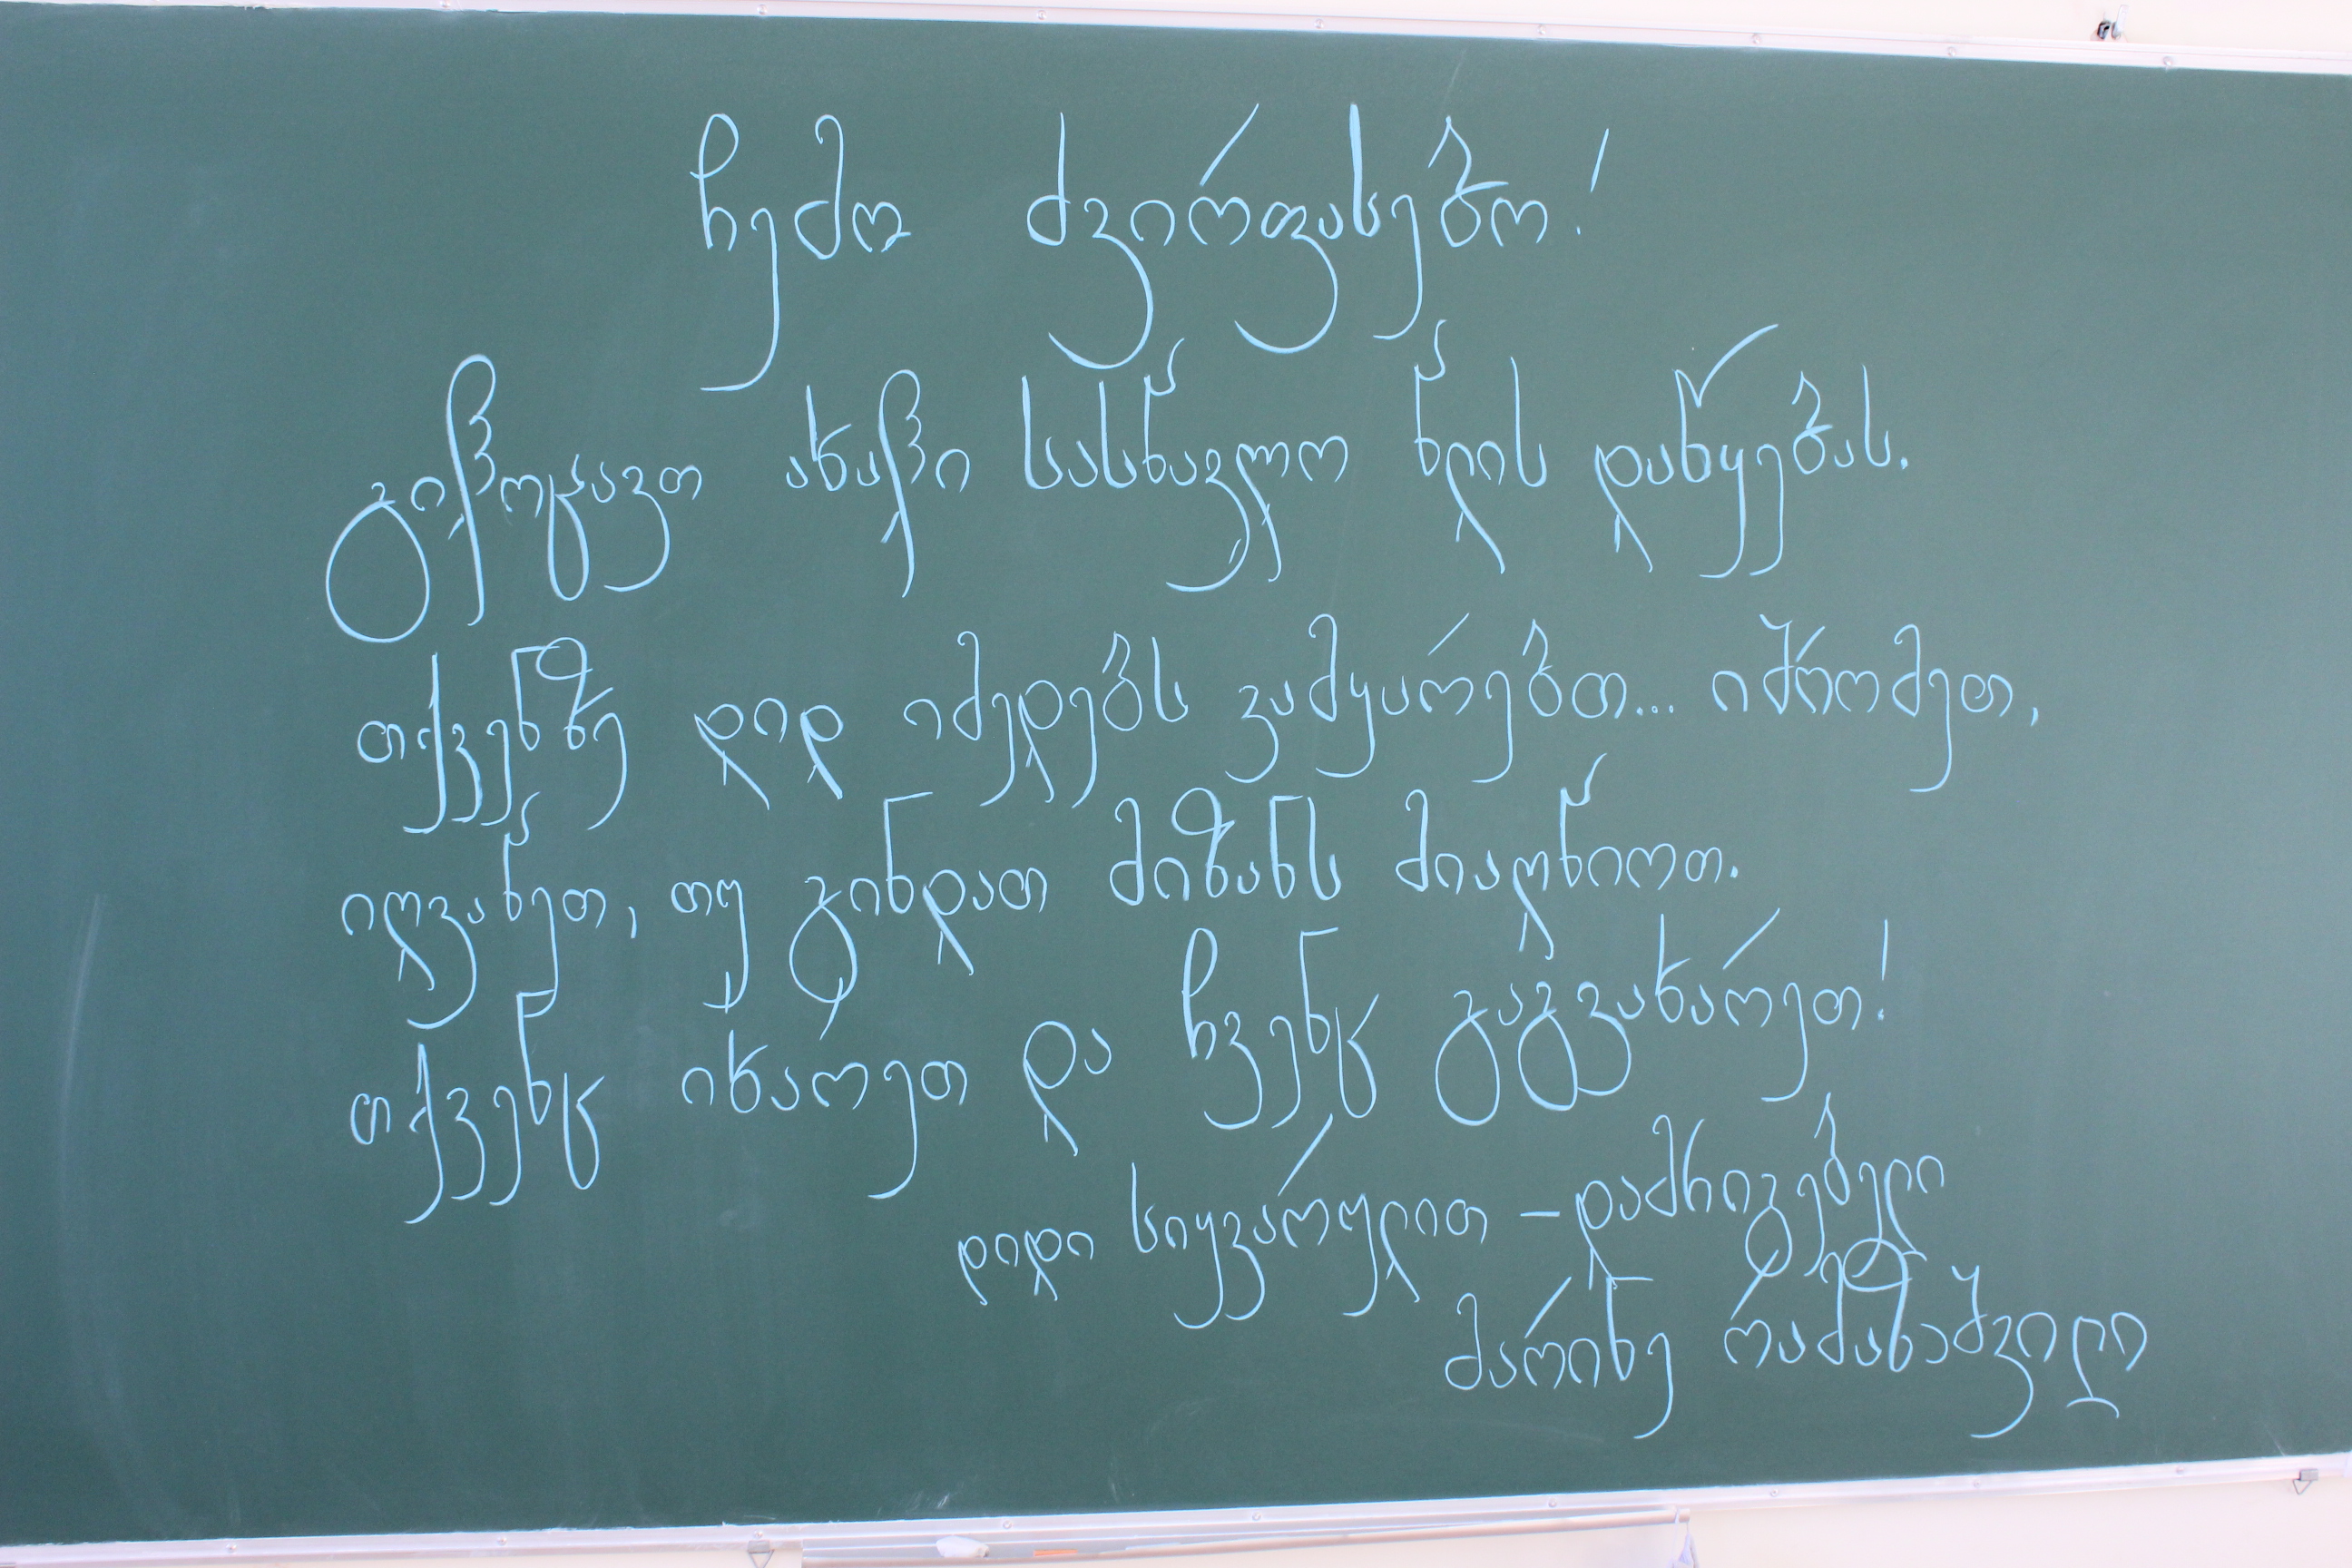 ჩემო ძვირფასებო!
გილოცავთ ახალი სასწავლო წლის დაწყებას.
თქვენზე დიდ იმედებს ვამყარებთ... იშრომეთ,
იღვაწეთ, თუ გინდათ მიზანს მიაღწიოთ.
თქვენც იხარეთ და ჩვენც გაგვახარეთ!
დიდი სიყვარულით – დამრიგებელი
მარინე რამაზაშვილი